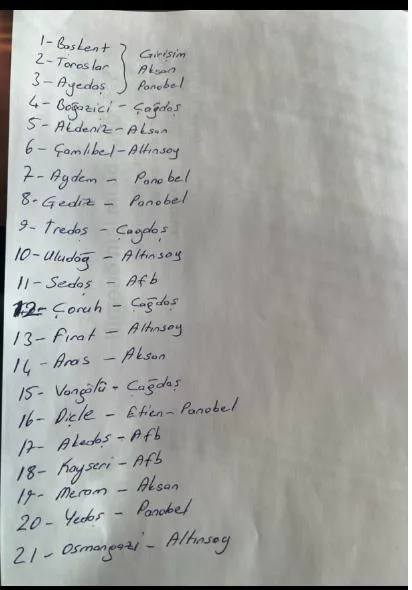 1-Başkent } Girişim
2-Toroslar } Aksan
3-Ayedaş } Panobel
4-Boğaziçi - Çağdaş
5-Akdeniz-Aksan
6-Çamlıbel-Altınsoy
7-Aydem - Panobel
8-Gediz - Panobel
9-Tredaş - Çagdaş
10-Uludağ - Altınsoy
11-Sedaş - Afb
12-Çoruh - Çağdaş
13-Fırat - Altınsoy
14-Aras - Aksan
15-Vangölü - Çağdaş
16-Dicle - Etien-Panobel
17-Akedaş-Afb
18-Kayseri-Afb
19-Meram - Aksan
20-Yedaş - Panobel
21-Osmangazi-Altınsoy